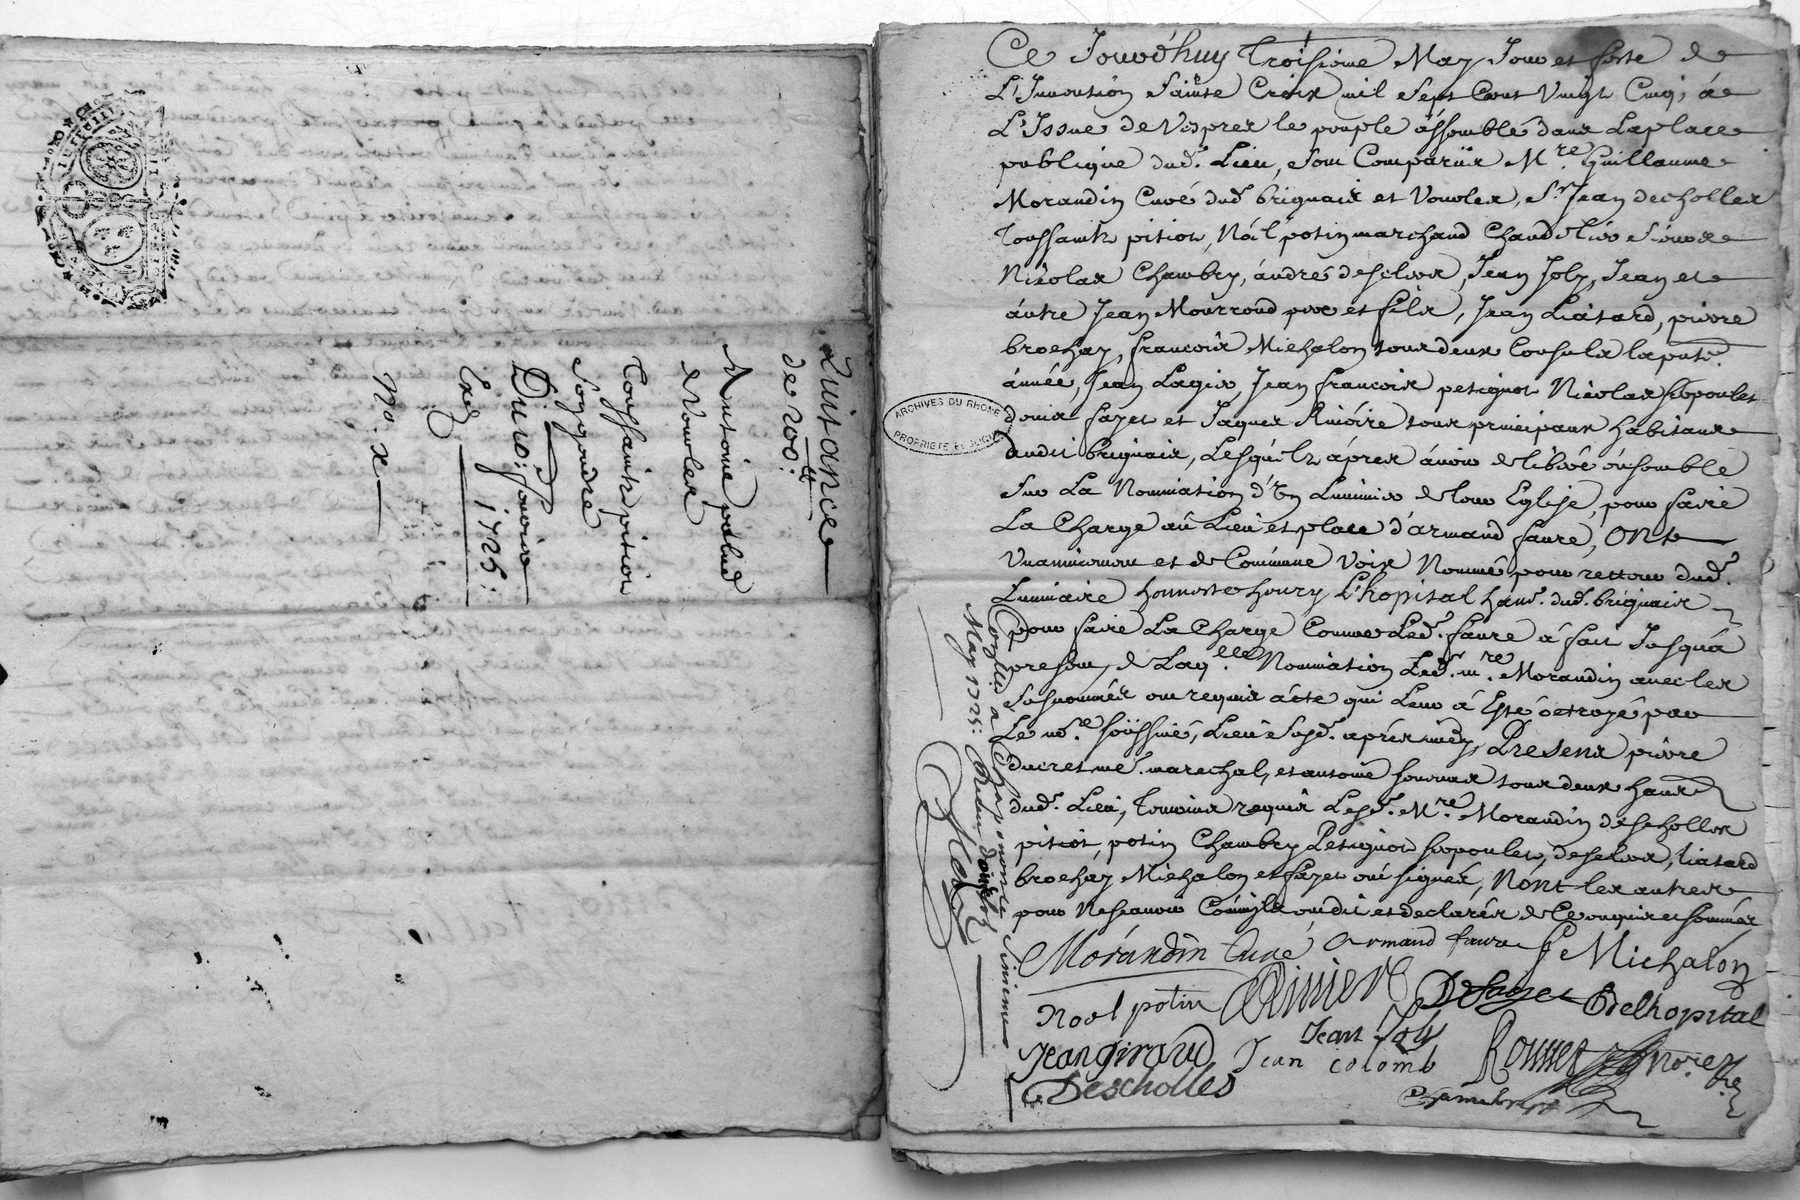 Quitance
de 200:lt
Antoine palud
de Vourles
Toussaintz pition
Du 10:e
1725:
No. x
ARCHIVES DU RHONE
PROPRIÉTÉ PUBLIQUE
Ce Jourd'huy Troisieme May Jour et feste de
L'Invention Sainte Croix mil Sept Cent Vingt Cinq, á
L'Issue de Vespres le peuple assemblé dans La place
publique dud. Lieu, Sont Comparus Mre Guillaume
Morandin Curé dud brignais et Vourles, Sr Jean descholles
Toussaintz pition, Noël potin marchand Chandelier Sieurs
Nicolas Chambry, andré deselves, Jean Joly, Jean et
autre Jean Mourroud pere et fils, Jean Liatard, pierre
brochay, francois Michalon tous deux Consuls la pnte
année, Jean Lagier, Jean francois petignot Nicolas
fayet et Jaques Riviére tous principaux habitans
dudit brignais, Lesquels áprés ávoir deliberé ensemble
Sur La Nomination d'Un Luminier de leur Eglise, pour faire
La Charge au Lieu et place d'armand faure, ONt
Unanimement et de Commune Voix Nommé pour recteur dud.
Luminaire honneste henry L'hopital habt. dud. brignais
pour faire La Charge Comme Led. faure á fait Jusquá
present, de Laqlle Nomination Led. mre Morandin avec les
Susnommés ont requis ácte qui Leur á Esté octroyé par
Le nore soussigné, Lieu Susd. aprés midy, Presens pierre
ducret me. marechal, et antoine tous deux habts
dud. Lieu, Temoins requis Lesd. Mre Morandin descholles
pition, potin Chambry Petignot deselves, liatard
brochay Michalon et fayet ont signés, Nont les autres
pour ne scavoir Comm'ils ont dit et declarés de Ce enquis et Sommés
Morandin Curé Armand faure f Michalon
Noel potin Riviere Defayet Delhopital
Jean Joly
Jean Giraud Jean Colomb
Descholles Chambry
Conlle a Chaponnost le
May 1725: